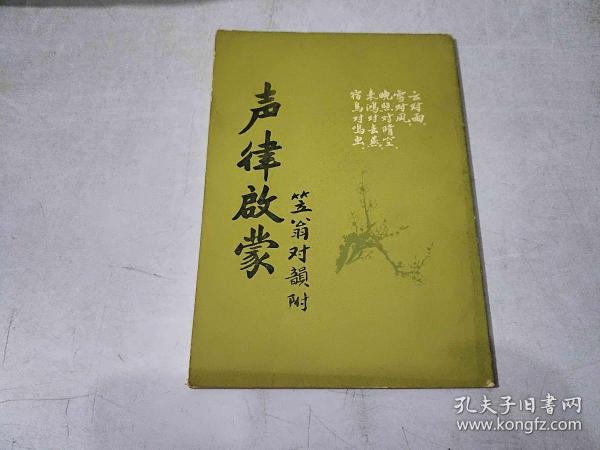 云对雨
雪对风
晚照对晴空
来鸿对去燕
宿鸟对鸣虫
声律啟蒙
笠翁对韻附
孔夫子旧书网
www.kongfz.com